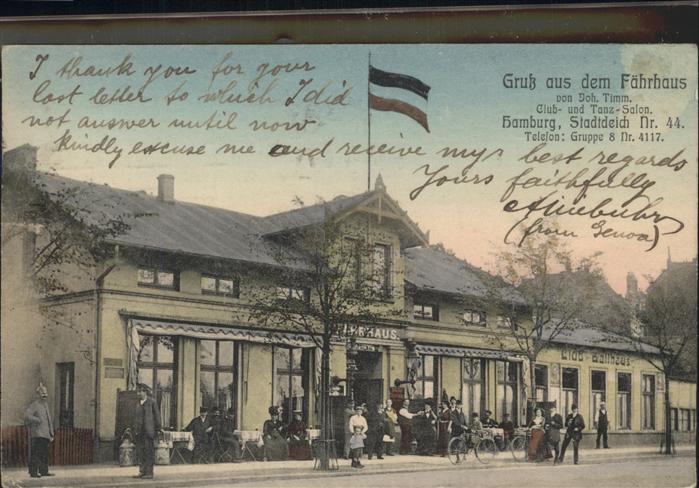 I thank you for your
last letter to which I did
not answer until now
kindly excuse me and receive my best regards
Yours faithfully
(from Genoa)
Gruß aus dem Fährhaus
von Joh. Timm.
Club- und Tanz-Salon.
Hamburg, Stadtdeich Nr. 44.
Telefon: Gruppe 8 Nr. 4117.
FÄHRHAUS
Club-Ballhaus